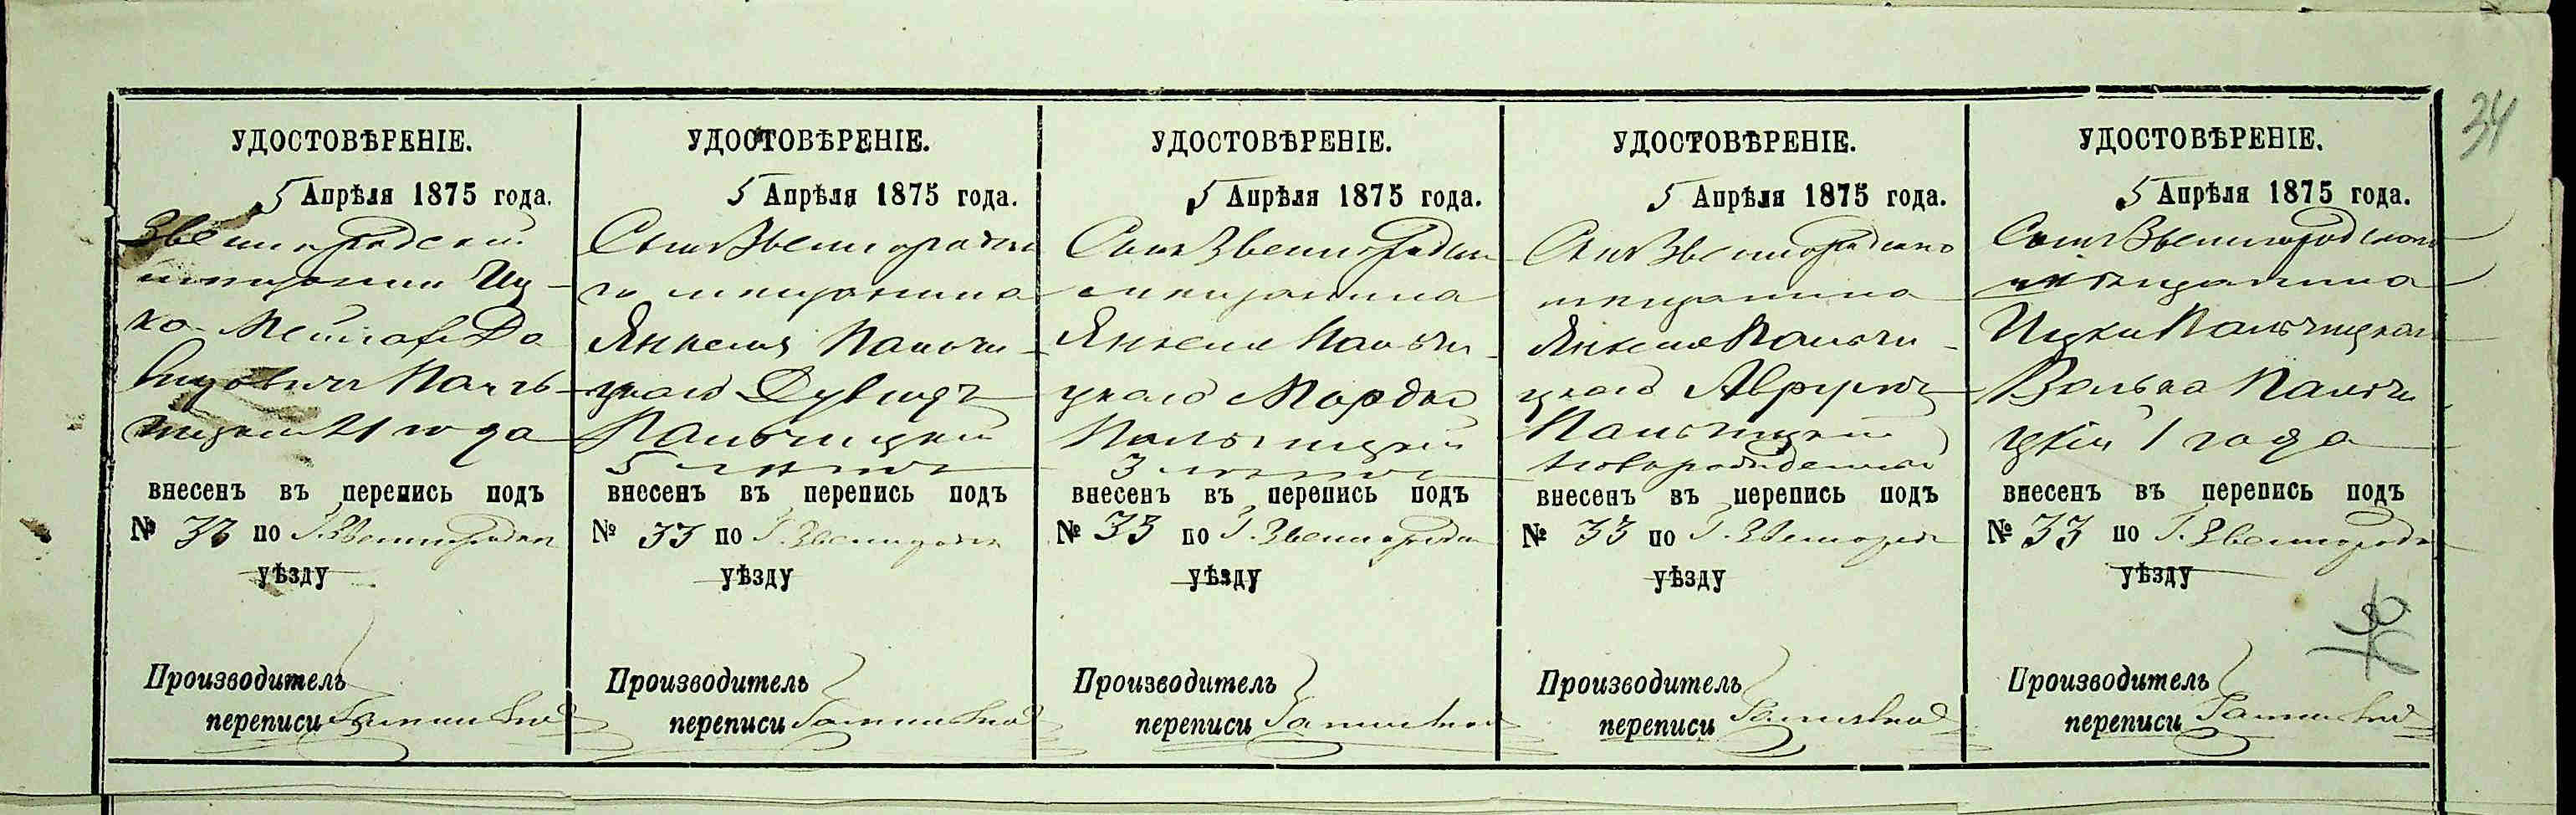 34
УДОСТОВѢРЕНІЕ.
5 Апрѣля 1875 года.
Звенигородскій
мещанинъ Иц-
ко Да
видовичъ Паль-
чицкій 21 года
внесенъ въ перепись подъ
№ 33 по Г. Звенигородкѣ
уѣзду
Производитель
переписи
УДОСТОВѢРЕНІЕ.
5 Апрѣля 1875 года.
Сынъ Звенигородска
го мещанина
Янкеля Пальчи-
цкаго Дувидъ
Пальчицкій
5 лѣтъ
внесенъ въ перепись подъ
№ 33 по Г. Звенигородкѣ
уѣзду
Производитель
переписи
УДОСТОВѢРЕНІЕ.
5 Апрѣля 1875 года.
Сынъ Звенигородскаго
мещанина
Янкеля Пальчи-
цкаго Мордко
Пальчицкій
3 лѣтъ
внесенъ въ перепись подъ
№ 33 по Г. Звенигородкѣ
уѣзду
Производитель
переписи
УДОСТОВѢРЕНІЕ.
5 Апрѣля 1875 года.
Сынъ Звенигородскаго
мещанина
Янкеля Пальчи-
цкаго Аврумъ
Пальчицкій
новорожденный
внесенъ въ перепись подъ
№ 33 по Г. Звенигородкѣ
уѣзду
Производитель
переписи
УДОСТОВѢРЕНІЕ.
5 Апрѣля 1875 года.
Сынъ Звенигородскаго
мещанина
Ицки Пальчицкаго
Волько Пальчи
цкій 1 года
внесенъ въ перепись подъ
№ 33 по Г. Звенигородкѣ
уѣзду
Производитель
переписи